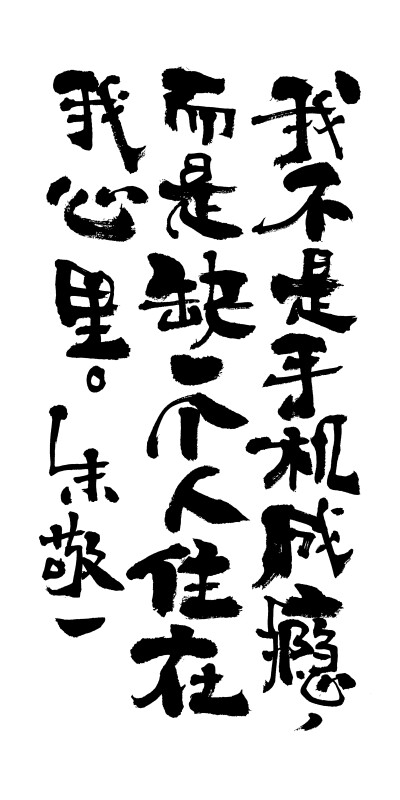 我不是手机成瘾，
而是缺一个人住在
我心里。朱敬一